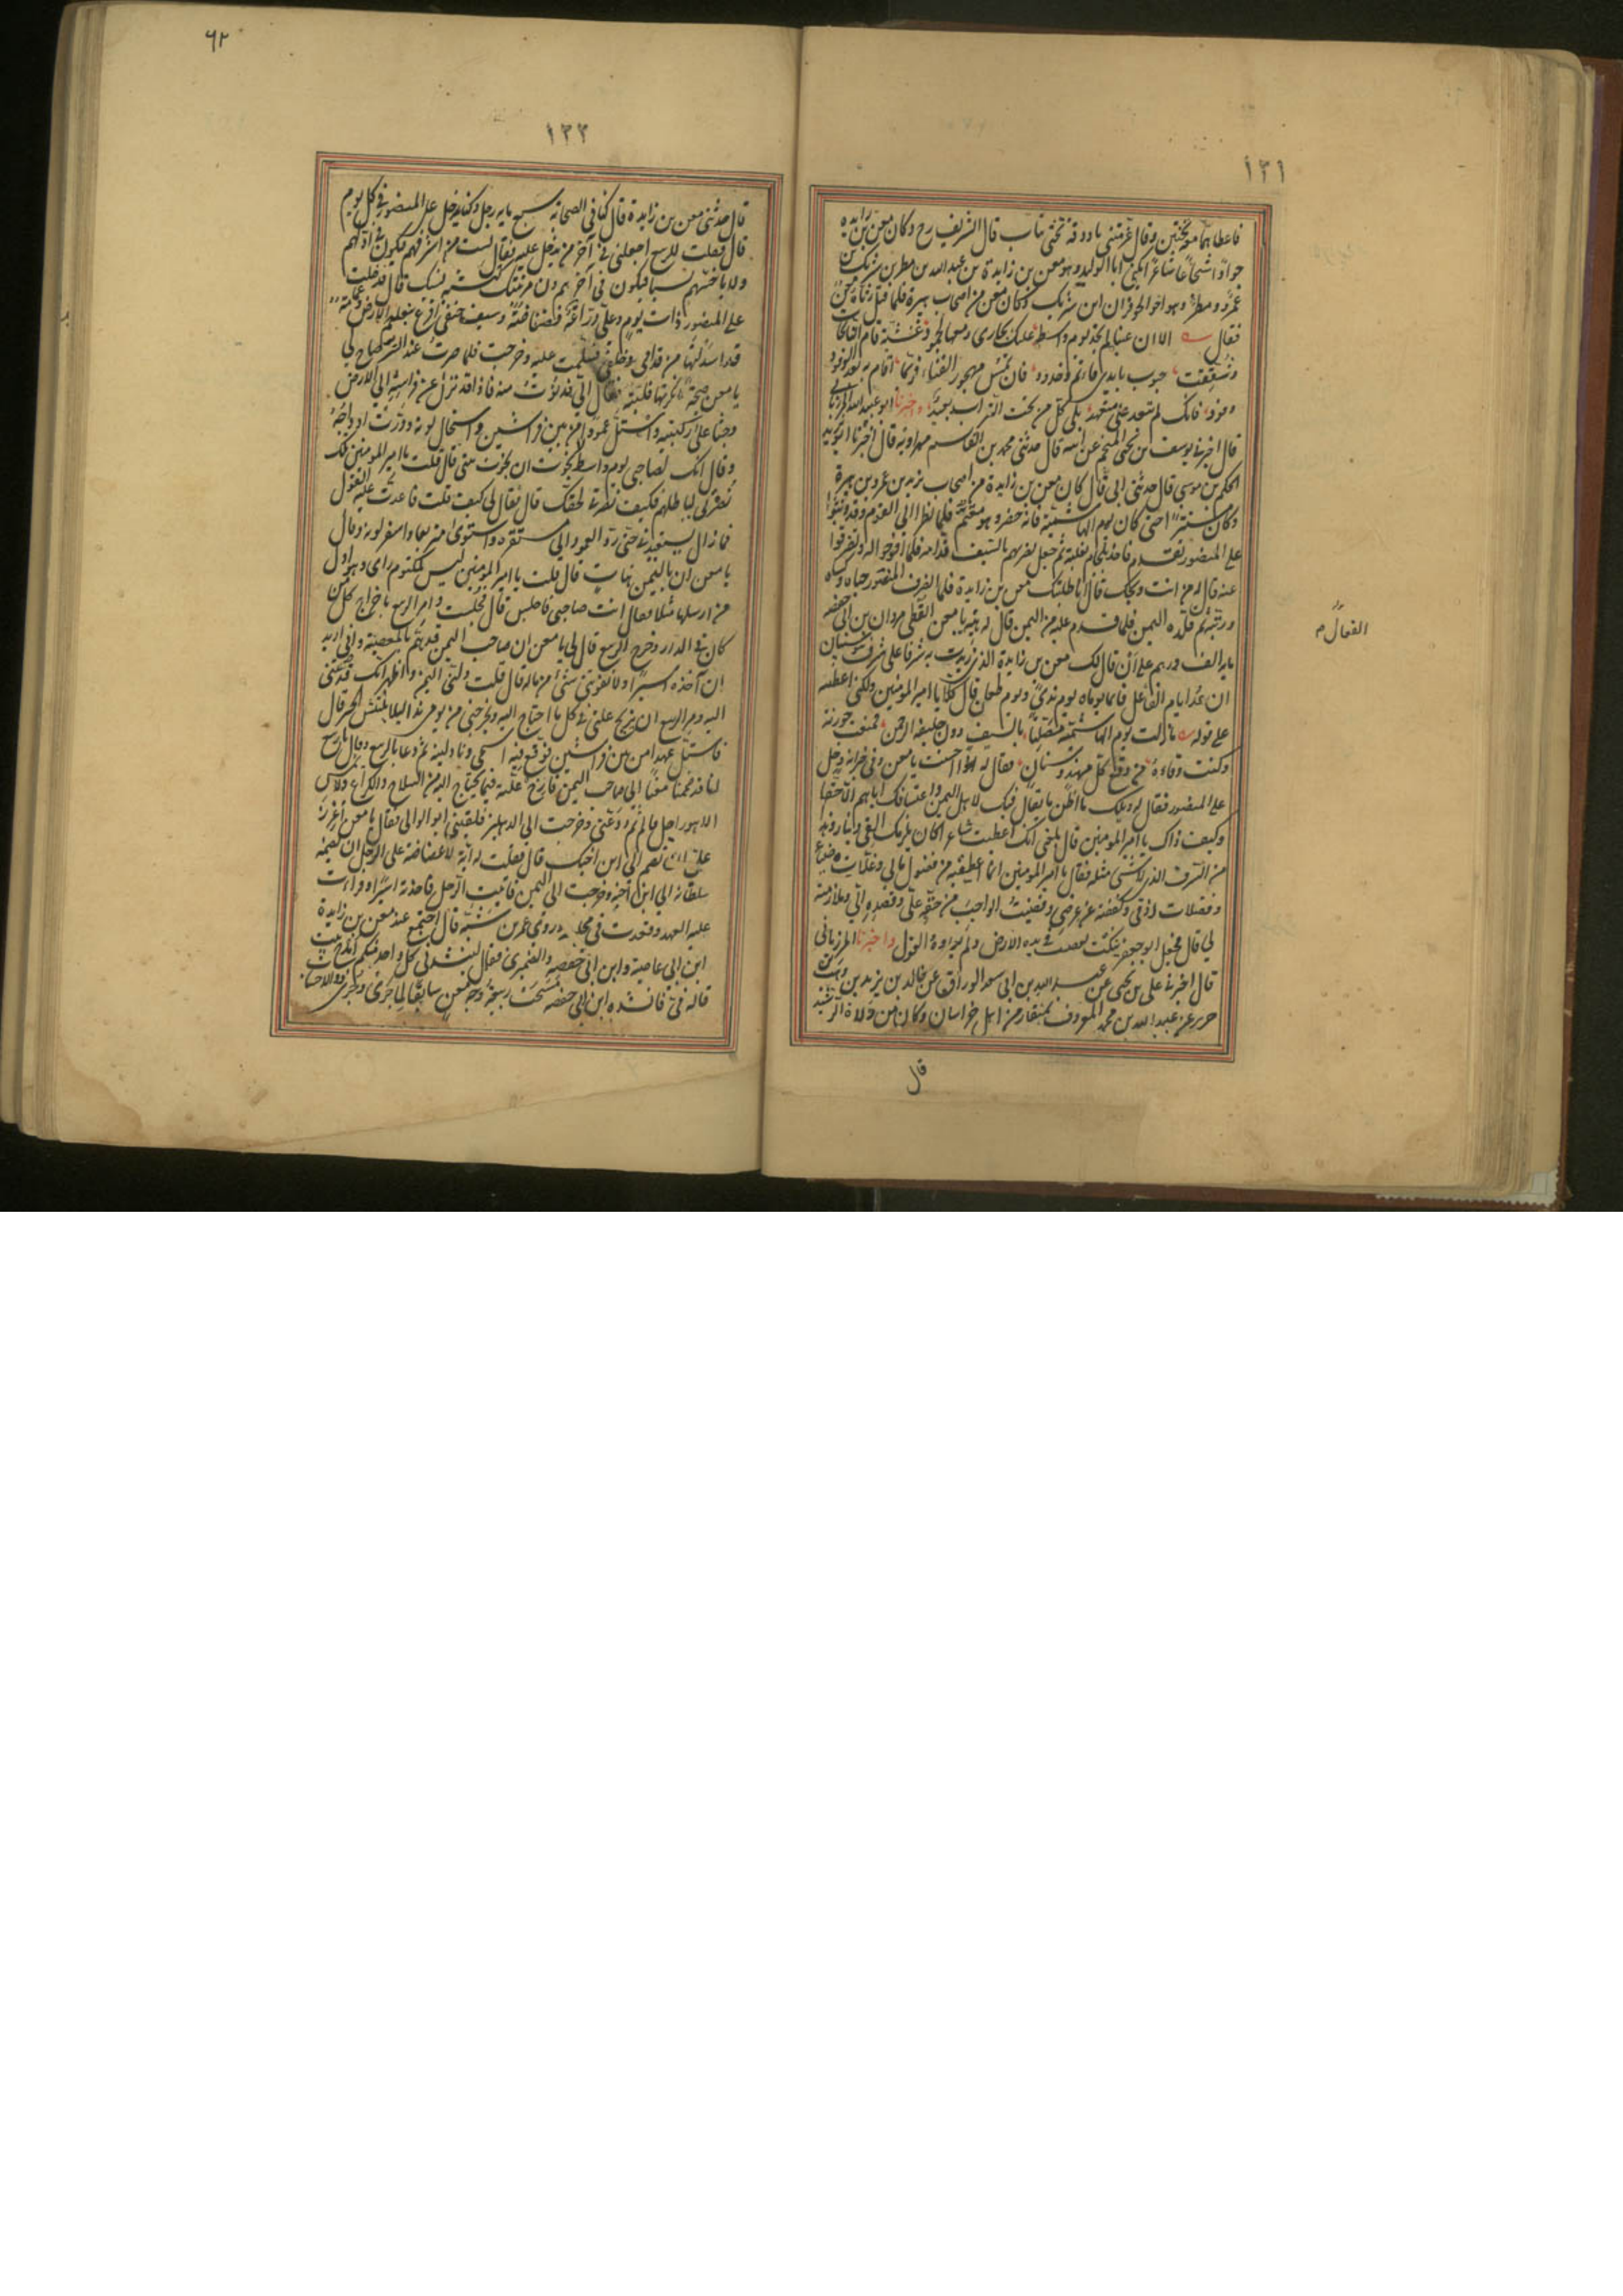 ١٣١
فاعطاهما موبختين وقال غرمتنى يا دوقة تختى ثياب قال الشريف رح وكان معن بن زايدة
جوادا شجاعا شاعرا يكنى ابا الوليد وهو معن بن زايدة بن عبد الله بن مطر بن شريك بن
عمرو ومطر وهو اخو الحوفزان ابن شريك وكان معن من اصحاب بن هبيرة فلما قتل رثاه معن
فقال الا ان عينا لم تجد يوم واسط عليك بجارى دمعها لجمود عشية قام النائحات
وشققت جيوب بايدى مأتم وخدود فان تمس مهجور الفناء فربما اقام به بعد الوفود
وفود فانك لم تبعد على متعهد بلى كل من تحت التراب بعيد واخبرنا ابو عبيد الله المرزبانى
قال اخبرنى يوسف بن يحيى المنجم عن ابيه قال حدثنى محمد بن القاسم مهرويه قال اخبرنا ابو زيد
الحكم بن موسى قال حدثنى ابى قال كان معن بن زايدة من اصحاب يزيد بن عمرو بن هبيرة
وكان مستترا حتى كان يوم الهاشمية فانه حضر وهو معتم فلما نظر الى القوم وقد وثبوا
على المنصور تقدم فاخذ بلجام بغلته ثم جعل يضربهم بالسيف قدامه فلما افرجوا له وتفرقوا
عنه قال له من انت ويحك قال انا طلبتك معن بن زايدة فلما انصرف المنصور حباه وكساه
ورتبه ثم قلده اليمن فلما قدم عليه من اليمن قال له هيه يا معن اتعطى مروان بن ابى حفصة
ماية الف درهم على ان قال لك معن بن زايدة الذى زيدت به شرفا على شرف بنو شيبان
ان عد ايام الفعال فانما يوماه يوم ندى ويوم طعان قال كلا يا امير المؤمنين ولكنى اعطيته
على قوله ما زلت يوم الهاشمية معلنا بالسيف دون خليفة الرحمن فمنعت حوزته
وكنت وقاءه من وقع كل مهند وسنان فقال له احسنت يا معن وفى خزانة دخل
على المنصور فقال له ويلك ما اظن ما يقال فيك لاهل اليمن واعتسافك اياهم الا حقا
وكيف ذاك يا امير المؤمنين قال بلغنى انك اعطيت شاعرا كان يلزمك الف دينار
من السرف الذى لا شىء مثله فقال يا امير المؤمنين انما اعطيته من فضول مالى وغلات ضياعى
وفضلات رزقى وكففته عن عرضى وقضيت الواجب من حقه على وقصده الى وملازمته
لى قال فجعل ابو جعفر ينكت بقضيب فى يده الارض ولم يعاوده القول واخبرنا المرزبانى
قال اخبرنى على بن يحيى عن عبد الله بن ابى سعد الوراق عن خالد بن يزيد بن وهب بن
جرير عن عبد الله بن محمد المعروف بمنقار من اهل خراسان وكان من ولاة الرشيد
قال
الفعال م
٦٢
١٣٢
قال حدثنى معن بن زايدة قال كنا فى الصحابة سبع ماية رجل وكنا ندخل على المنصور فى كل يوم
قال فقلت للربيع اجعلنى فى آخر من يدخل عليه فقال لست من اشرفهم فيكون فى اولهم
ولا باخسهم نسبا فيكون فى آخرهم وان مرتبتك لتشبه نسبك قال فدخلت
على المنصور ذات يوم وعلى دراعة فضفاضة وسيف حنفى اقرع بنعله الارض وعمامة
قد اسدلتها من قدامى وخلفى فسلمت عليه وخرجت فلما صرت عند الستر صاح بى
يا معن صيحة انكرتها فلبيته فقال الى فدنوت منه فاذا قد نزل عن فراشه الى الارض
وجثا على ركبتيه واستل عمودا من بين فراشين واستحال لونه ودرت اوداجه
وقال انك لصاحبى يوم واسط لا نجوت ان نجوت منى قال قلت يا امير المؤمنين تلك
نصرتى لباطلهم فكيف نصرتى لحقك قال فقال لى كيف قلت فاعدت عليه القول
فما زال يستعيدنى حتى رد العمود الى مستقره واستوى متربعا واسفر لونه وقال
يا معن ان باليمن هنات قال قلت يا امير المؤمنين ليس لمكتوم راى وهو اول
من ارسلها مثلا فقال انت صاحبى فاجلس قال فجلست وامر الربيع باخراج كل من
كان فى الدار وخرج الربيع قال لى يا معن ان صاحب اليمن قد هم بالمعصية وانى اريد
ان آخذه اسيرا ولا يفوتنى شىء من ماله قال قلت ولنى اليمن واظهر انك قد ضممتنى
اليه ومر الربيع ان يزيح علتى فى كل ما احتاج اليه ويخرجنى من يومى هذا لئلا ينتشر الخبر قال
فاستل عهدا من بين فراشين فوقع فيه اسمى وناولنيه ثم دعا بالربيع وقال يا ربيع
انا قد ضممنا معنا الى صاحب اليمن فازح علته فيما يحتاج اليه من السلاح والكراع ولا يمس
الا وهو راحل قال ثم ودعنى وخرجت الى الدهليز فلقينى ابو الوالى فقال يا معن اعزز
على ان تضم الى ابن اخيك قال فقلت له انه لا غضاضة على الرجل ان يضمه
سلطانه الى ابن اخيه وخرجت الى اليمن فاتيت الرجل فاخذته اسيرا وقرات
عليه العهد وقعدت فى مجلسه وروى عمر بن شبة قال اجتمع عند معن بن زايدة
ابن ابى عاصية وابن ابى حفصة والضمرى فقال لينشدنى كل واحد منكم امدح بيت
قاله فى فانشده ابن ابى حفصة مسحت ربيعة وجه معن سابقا لما جرى وجرى ذوو الاحساب